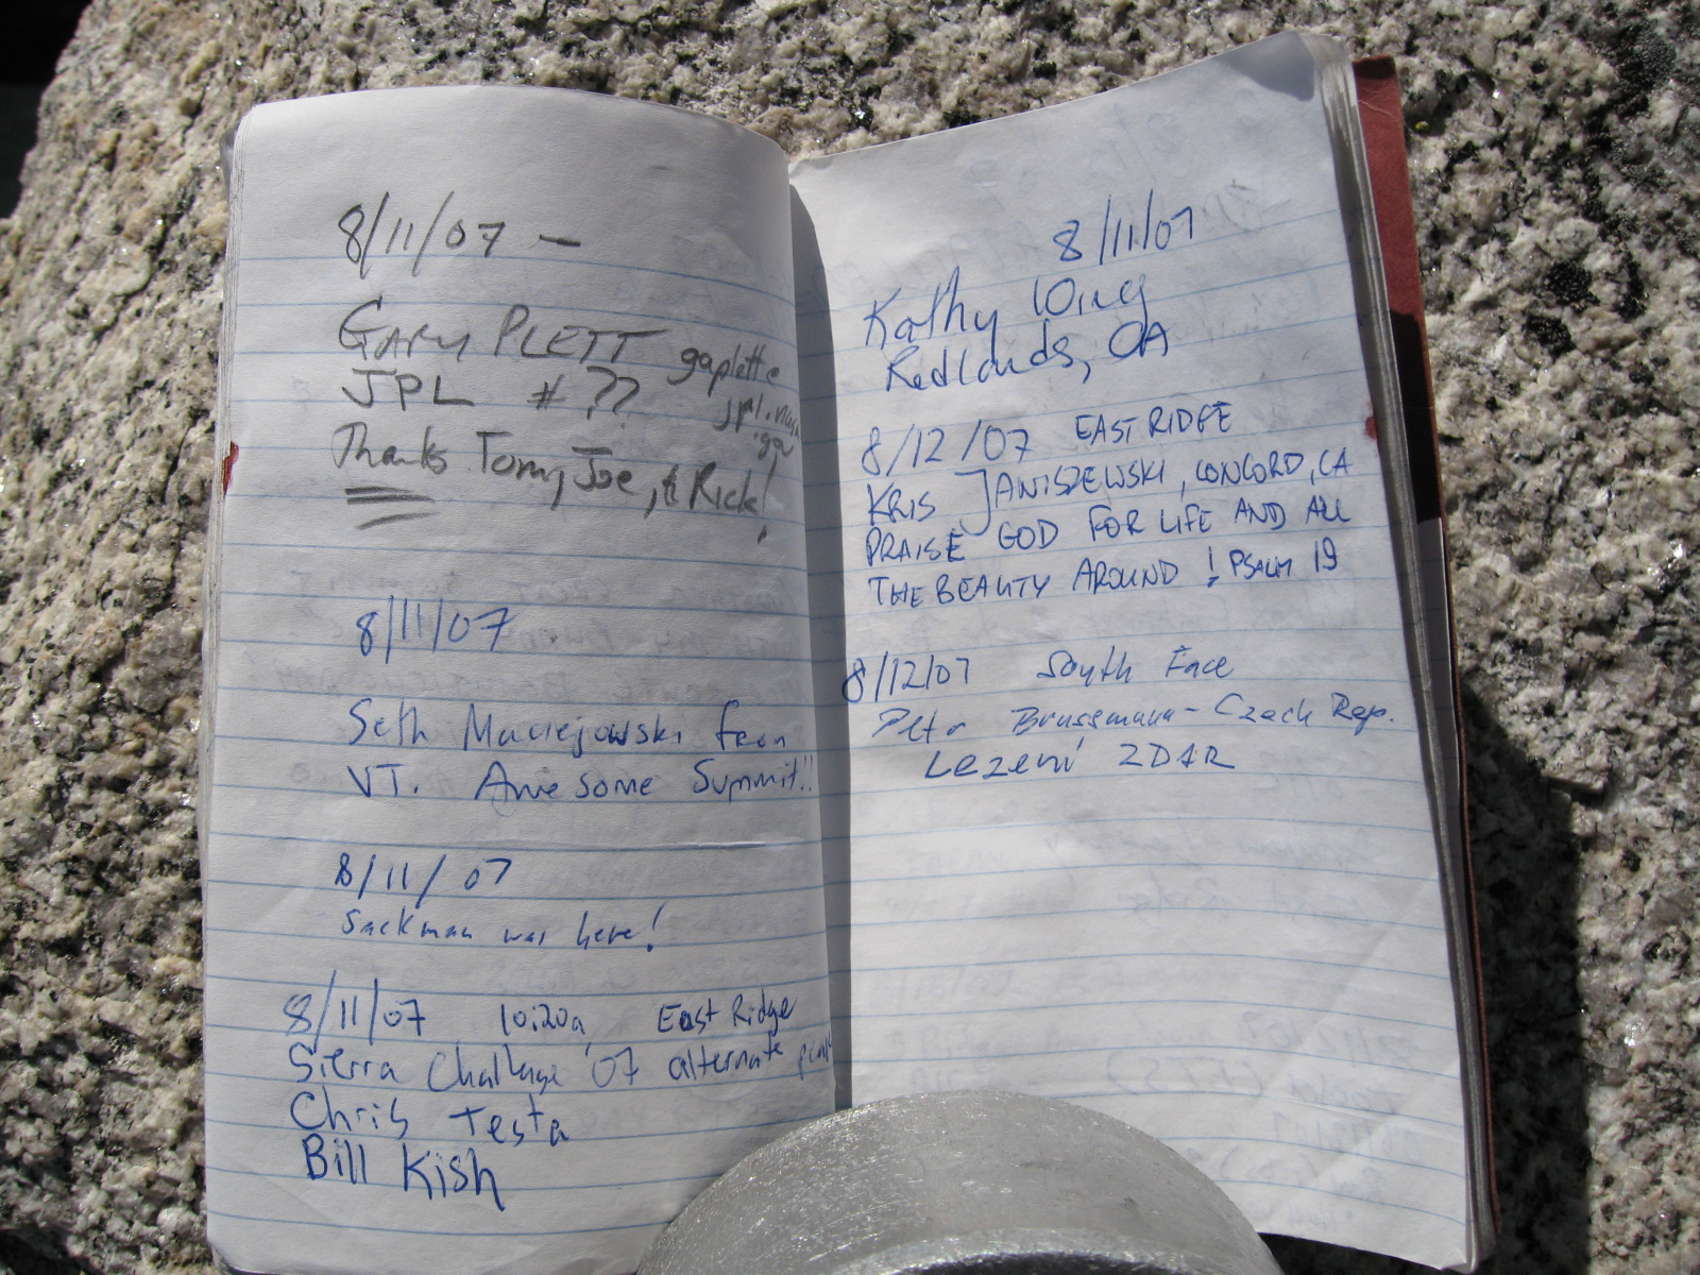 8/11/07 –
GARY PLETT gaplett@
JPL # ?? jpl.nasa
.gov
Thanks Tom, Joe, & Rick!
8/11/07
Seth Maciejowski from
VT. Awesome Summit!!
8/11/07
Sackman was here!
8/11/07 10:20a East Ridge
Sierra Challenge '07 alternate peak
Chris Testa
Bill Kish
8/11/07
Kathy Wing
Redlands, CA
8/12/07 EAST RIDGE
KRIS JANISZEWSKI, CONCORD, CA
PRAISE GOD FOR LIFE AND ALL
THE BEAUTY AROUND! PSALM 19
8/12/07 South Face
Petr Brussmann - Czech Rep.
Lezení ZDAR